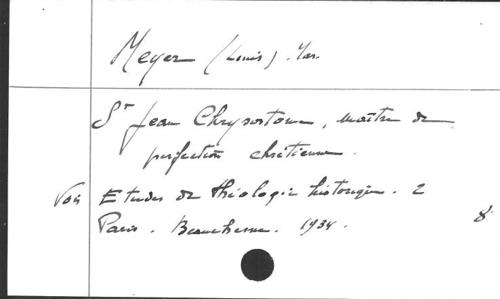 Meyer (Louis). Mar.
St Jean Chrysostome, maître de
perfection chrétienne.
Voir Etudes de théologie historique. 2
Paris. Beauchesne. 1934. 8°